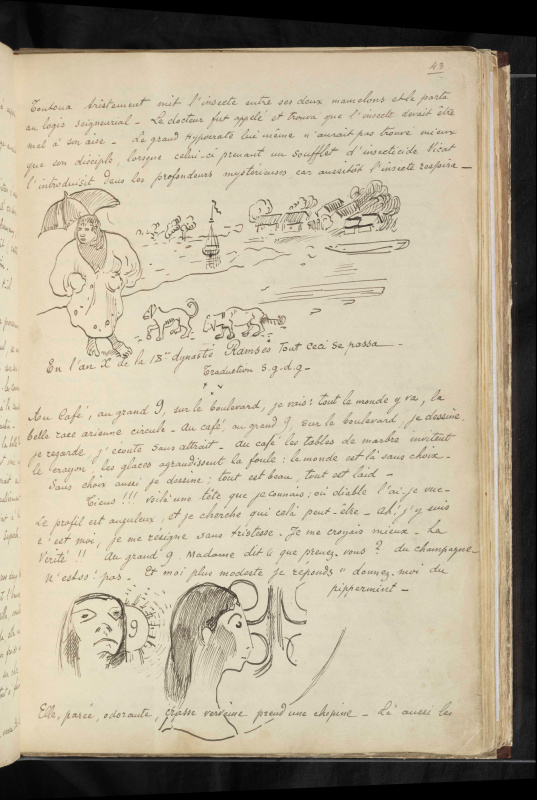 43
Toutoua tristement mit l'insecte entre ses deux mamelons et le porta
au logis seigneurial - Le docteur fut appelé et trouva que l'insecte devait être
mal à son aise - Le grand Hypocrate lui même n'aurait pas trouvé mieux
que son disciple, lorsque celui-ci prenant un soufflet d'insecticide Vicat
l'introduisit dans les profondeurs mystérieuses car aussitôt l'insecte respira -
En l'an X de la 18me dynastie Ramsès tout ceci se passa -
Traduction s.g.d.g -
Au Café, au grand 9, sur le boulevard, je vais: tout le monde y va, la
belle race arienne circule - Au café, au grand 9, sur le boulevard, je dessine
je regarde j'écoute sans attrait - Au café les tables de marbre invitent
le crayon, les glaces agrandissent la foule: le monde est là sans choix -
Sans choix aussi, je dessine; tout est beau, tout est laid -
Tiens!!! voilà une tête que je connais; où diable l'ai-je vue -
Le profil est anguleux, et je cherche qui celà peut-être - Ah! j'y suis
c'est moi, je me résigne sans tristesse. Je me croyais mieux - La
Vérité!! Au grand 9 Madame dit "que prenez vous? du champagne -
N'est ss! pas - Et moi plus modeste je réponds "donnez-moi du
pippermint -
9
Elle, parée, odorante, grasse verveine prend une chopine - Là aussi les